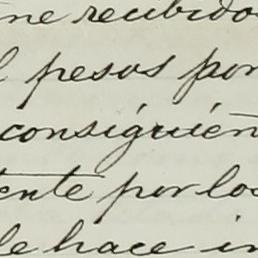 ne recibido
l pesos por
consiguién
tente por los
le hace in